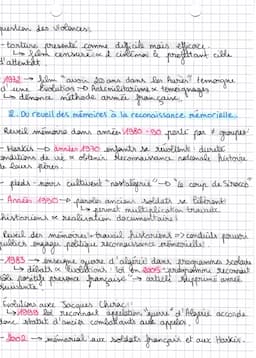 question des violences:
- torture présenté comme difficile mais efficace.
↳ film censuré ds 2 cinémas le projettant cible
d'attentat
- 1972 → film "avoir 20 ans dans les Aurès" témoigne
d'une évolution → Antimilitarisme + témoignages
↳ dénonce méthode armée française.
2. Du réveil des mémoires à la reconnaissance mémorielle.
Réveil mémoire dans années 1980-90 porté par ≠ groupes:
- Harkis → années 1970 enfants se révoltent: dureté
conditions de vie + obtenir reconnaissance nationale histoire
de leurs pères.
- pieds-noirs cultivent "nostalgérie" → "le coup de Sirocco"
- Années 1990 → parole anciens soldats se libèrent
↳ permet multiplication travaux
historiens + réalisation documentaires
Réveil des mémoires + travail historiens => conduits pouvoirs
publics engager politique reconnaissance mémorielle:
- 1983 → enseigne guerre d'algérie dans programmes scolaires
↳ débats + évolutions: loi en 2005 → programme reconnait
rôle positif présence française" → article supprimé année
suivante
Évolutions avec Jacques Chirac:
↳ 1999 loi reconnait appelation "guerre" d'Algérie accorde
donc statut d'ancien combattants aux appelés
- 2002 → mémorial aux soldats français et aux Harkis.